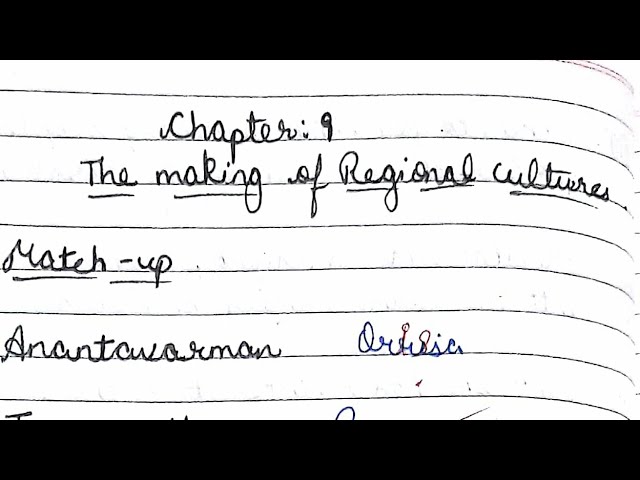 Chapter: 9
The making of Regional cultures.
Match-up
Anantavarman